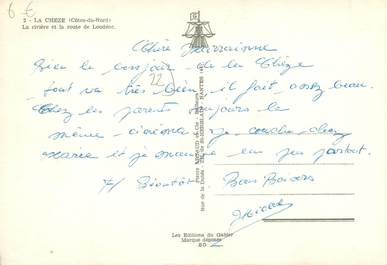 6 €
2 - LA CHEZE (Côtes-du-Nord)
La rivière et la route de Loudéac.
Chère Marraine
Bien le bonjour de la Chèze
22
tout va très bien, il fait assez beau.
Chez les parents toujours la
même couche chez
Marie et je mange un peu partout.
Bientôt Bons Baisers
Les Editions du Gabier
Marque déposée